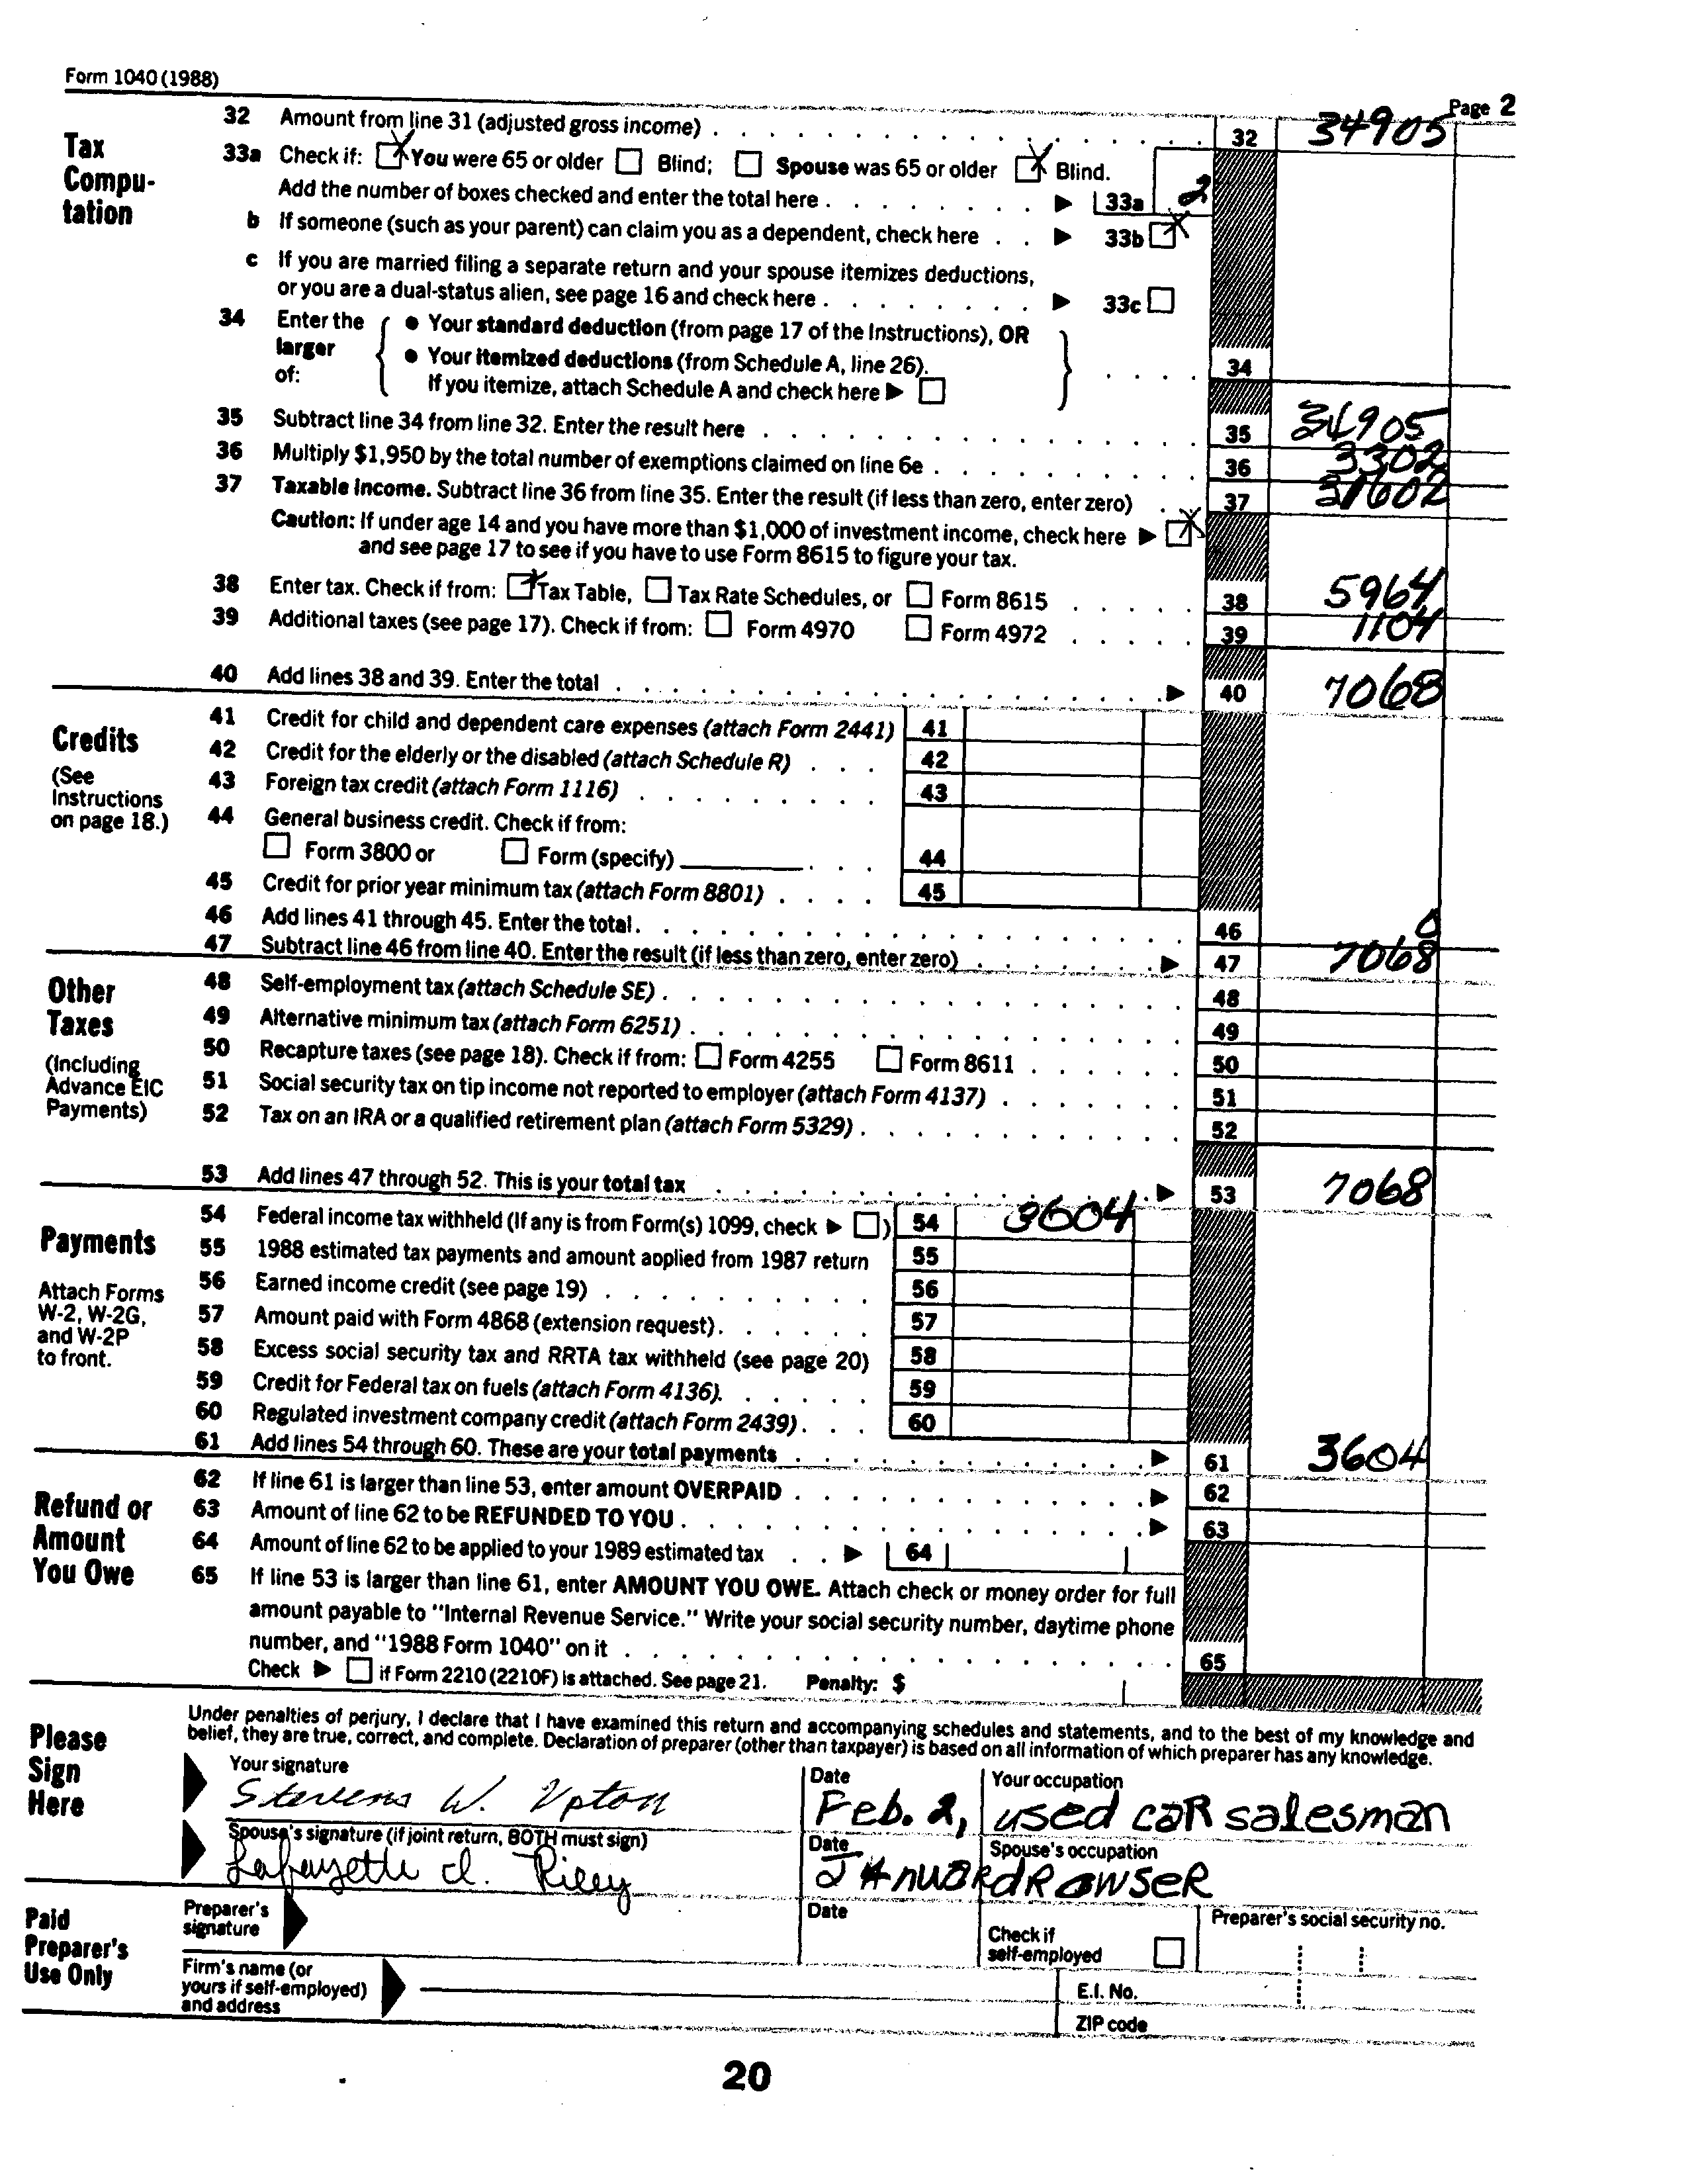 Form 1040 (1988)
Page 2
Tax Computation
32 Amount from line 31 (adjusted gross income) 32 34905
33a Check if: You were 65 or older Blind; Spouse was 65 or older Blind.
Add the number of boxes checked and enter the total here 33a 2
b If someone (such as your parent) can claim you as a dependent, check here 33b
c If you are married filing a separate return and your spouse itemizes deductions,
or you are a dual-status alien, see page 16 and check here 33c
34 Enter the larger of: • Your standard deduction (from page 17 of the Instructions), OR
• Your itemized deductions (from Schedule A, line 26).
If you itemize, attach Schedule A and check here 34
35 Subtract line 34 from line 32. Enter the result here 35 34905
36 Multiply $1,950 by the total number of exemptions claimed on line 6e 36 3302
37 Taxable income. Subtract line 36 from line 35. Enter the result (if less than zero, enter zero) 37 31602
Caution: If under age 14 and you have more than $1,000 of investment income, check here
and see page 17 to see if you have to use Form 8615 to figure your tax.
38 Enter tax. Check if from: Tax Table, Tax Rate Schedules, or Form 8615 38 5964
39 Additional taxes (see page 17). Check if from: Form 4970 Form 4972 39 1104
40 Add lines 38 and 39. Enter the total 40 7068
Credits
(See Instructions on page 18.)
41 Credit for child and dependent care expenses (attach Form 2441) 41
42 Credit for the elderly or the disabled (attach Schedule R) 42
43 Foreign tax credit (attach Form 1116) 43
44 General business credit. Check if from:
Form 3800 or Form (specify) 44
45 Credit for prior year minimum tax (attach Form 8801) 45
46 Add lines 41 through 45. Enter the total 46 0
47 Subtract line 46 from line 40. Enter the result (if less than zero, enter zero) 47 7068
Other Taxes
(Including Advance EIC Payments)
48 Self-employment tax (attach Schedule SE) 48
49 Alternative minimum tax (attach Form 6251) 49
50 Recapture taxes (see page 18). Check if from: Form 4255 Form 8611 50
51 Social security tax on tip income not reported to employer (attach Form 4137) 51
52 Tax on an IRA or a qualified retirement plan (attach Form 5329) 52
53 Add lines 47 through 52. This is your total tax 53 7068
Payments
Attach Forms W-2, W-2G, and W-2P to front.
54 Federal income tax withheld (If any is from Form(s) 1099, check ) 54 3604
55 1988 estimated tax payments and amount applied from 1987 return 55
56 Earned income credit (see page 19) 56
57 Amount paid with Form 4868 (extension request) 57
58 Excess social security tax and RRTA tax withheld (see page 20) 58
59 Credit for Federal tax on fuels (attach Form 4136) 59
60 Regulated investment company credit (attach Form 2439) 60
61 Add lines 54 through 60. These are your total payments 61 3604
Refund or Amount You Owe
62 If line 61 is larger than line 53, enter amount OVERPAID 62
63 Amount of line 62 to be REFUNDED TO YOU 63
64 Amount of line 62 to be applied to your 1989 estimated tax 64
65 If line 53 is larger than line 61, enter AMOUNT YOU OWE. Attach check or money order for full
amount payable to "Internal Revenue Service." Write your social security number, daytime phone
number, and "1988 Form 1040" on it 65
Check if Form 2210 (2210F) is attached. See page 21. Penalty: $
Please Sign Here
Under penalties of perjury, I declare that I have examined this return and accompanying schedules and statements, and to the best of my knowledge and
belief, they are true, correct, and complete. Declaration of preparer (other than taxpayer) is based on all information of which preparer has any knowledge.
Your signature Date Your occupation
Stevens W. Upton Feb. 2, used caR salesman
Spouse's signature (if joint return, BOTH must sign) Date Spouse's occupation
Lafayette d. Riley JAnuaRdRowseR
Paid Preparer's Use Only
Preparer's signature Date Check if self-employed Preparer's social security no.
Firm's name (or yours if self-employed) and address E.I. No.
ZIP code
20